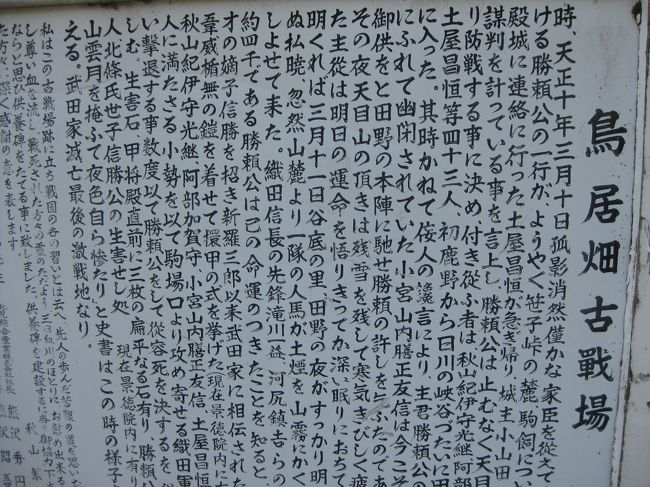 鳥居畑古戰場
時、天正十年三月十日孤影消然僅かな家臣を從えて
ける勝頼公の一行が、ようやく笹子峠の麓駒飼につい
殿城に連絡に行った土屋昌恒が急ぎ帰り、城主小山田
謀判を計っている事を言上し、勝頼公は止むなく天目
り防戦する事に決め付き従ふ者は、秋山紀伊守光継阿部
土屋昌恒等四十三人、初鹿野から日川の峡谷づたいに田
に入った。其時かねて侫人の讒言により、主君勝頼公の
にふれて幽閉されていた小宮山内膳正友信は今こそ
御供をと田野の本陣に馳せ勝頼の許しを与たのであ
その夜天目山の頂きは残雪を残して寒気きびしく疲
た主從は明日の運命を悟りきってか深い眠におちて
明くれば三月十一日谷底の里、田野の夜がすっかり明
ぬ払暁、忽然山麓より一隊の人馬が土煙を山霧にかく
しよせて来た。織田信長の先鋒滝川一益、河尻鎮吉らの
約四千である勝頼公は己の命運のつきたことを知ると、
才の嫡子信勝を招き新羅三郎以来武田家に相伝された
葦威楯無の鎧を着せて擐甲の式を挙げた現在景徳院内に有
秋山紀伊守光継阿部加賀守、小宮山内膳正友信、土屋昌恒
人に満たさる小勢を以て駒場口より攻め寄せる織田軍
い撃退する事数度以て勝頼公をして從容死を決するを
しむ。生害石、甲将殿直前に三枚の扁平なる石有り、勝頼公
人北條氏世子信勝公の生害せし処 現在景徳院内に有
山雲月を掩ふて夜色自ら惨たりと史書はこの時の様子
える。武田家滅亡最後の激戦地なり。
私はこの古戦場跡に立ち戦国の世の習いとは云へ、先人の歩んだ苦難の道を思い
し尊い血を流し、戦死された方々の霊のただよう三日血川のほとりに、お慰め出来る
ならと思ひ供養碑をたてる事に致しました。供養碑を建設するに当り御協力下
た方々に深く感謝の意を表します。